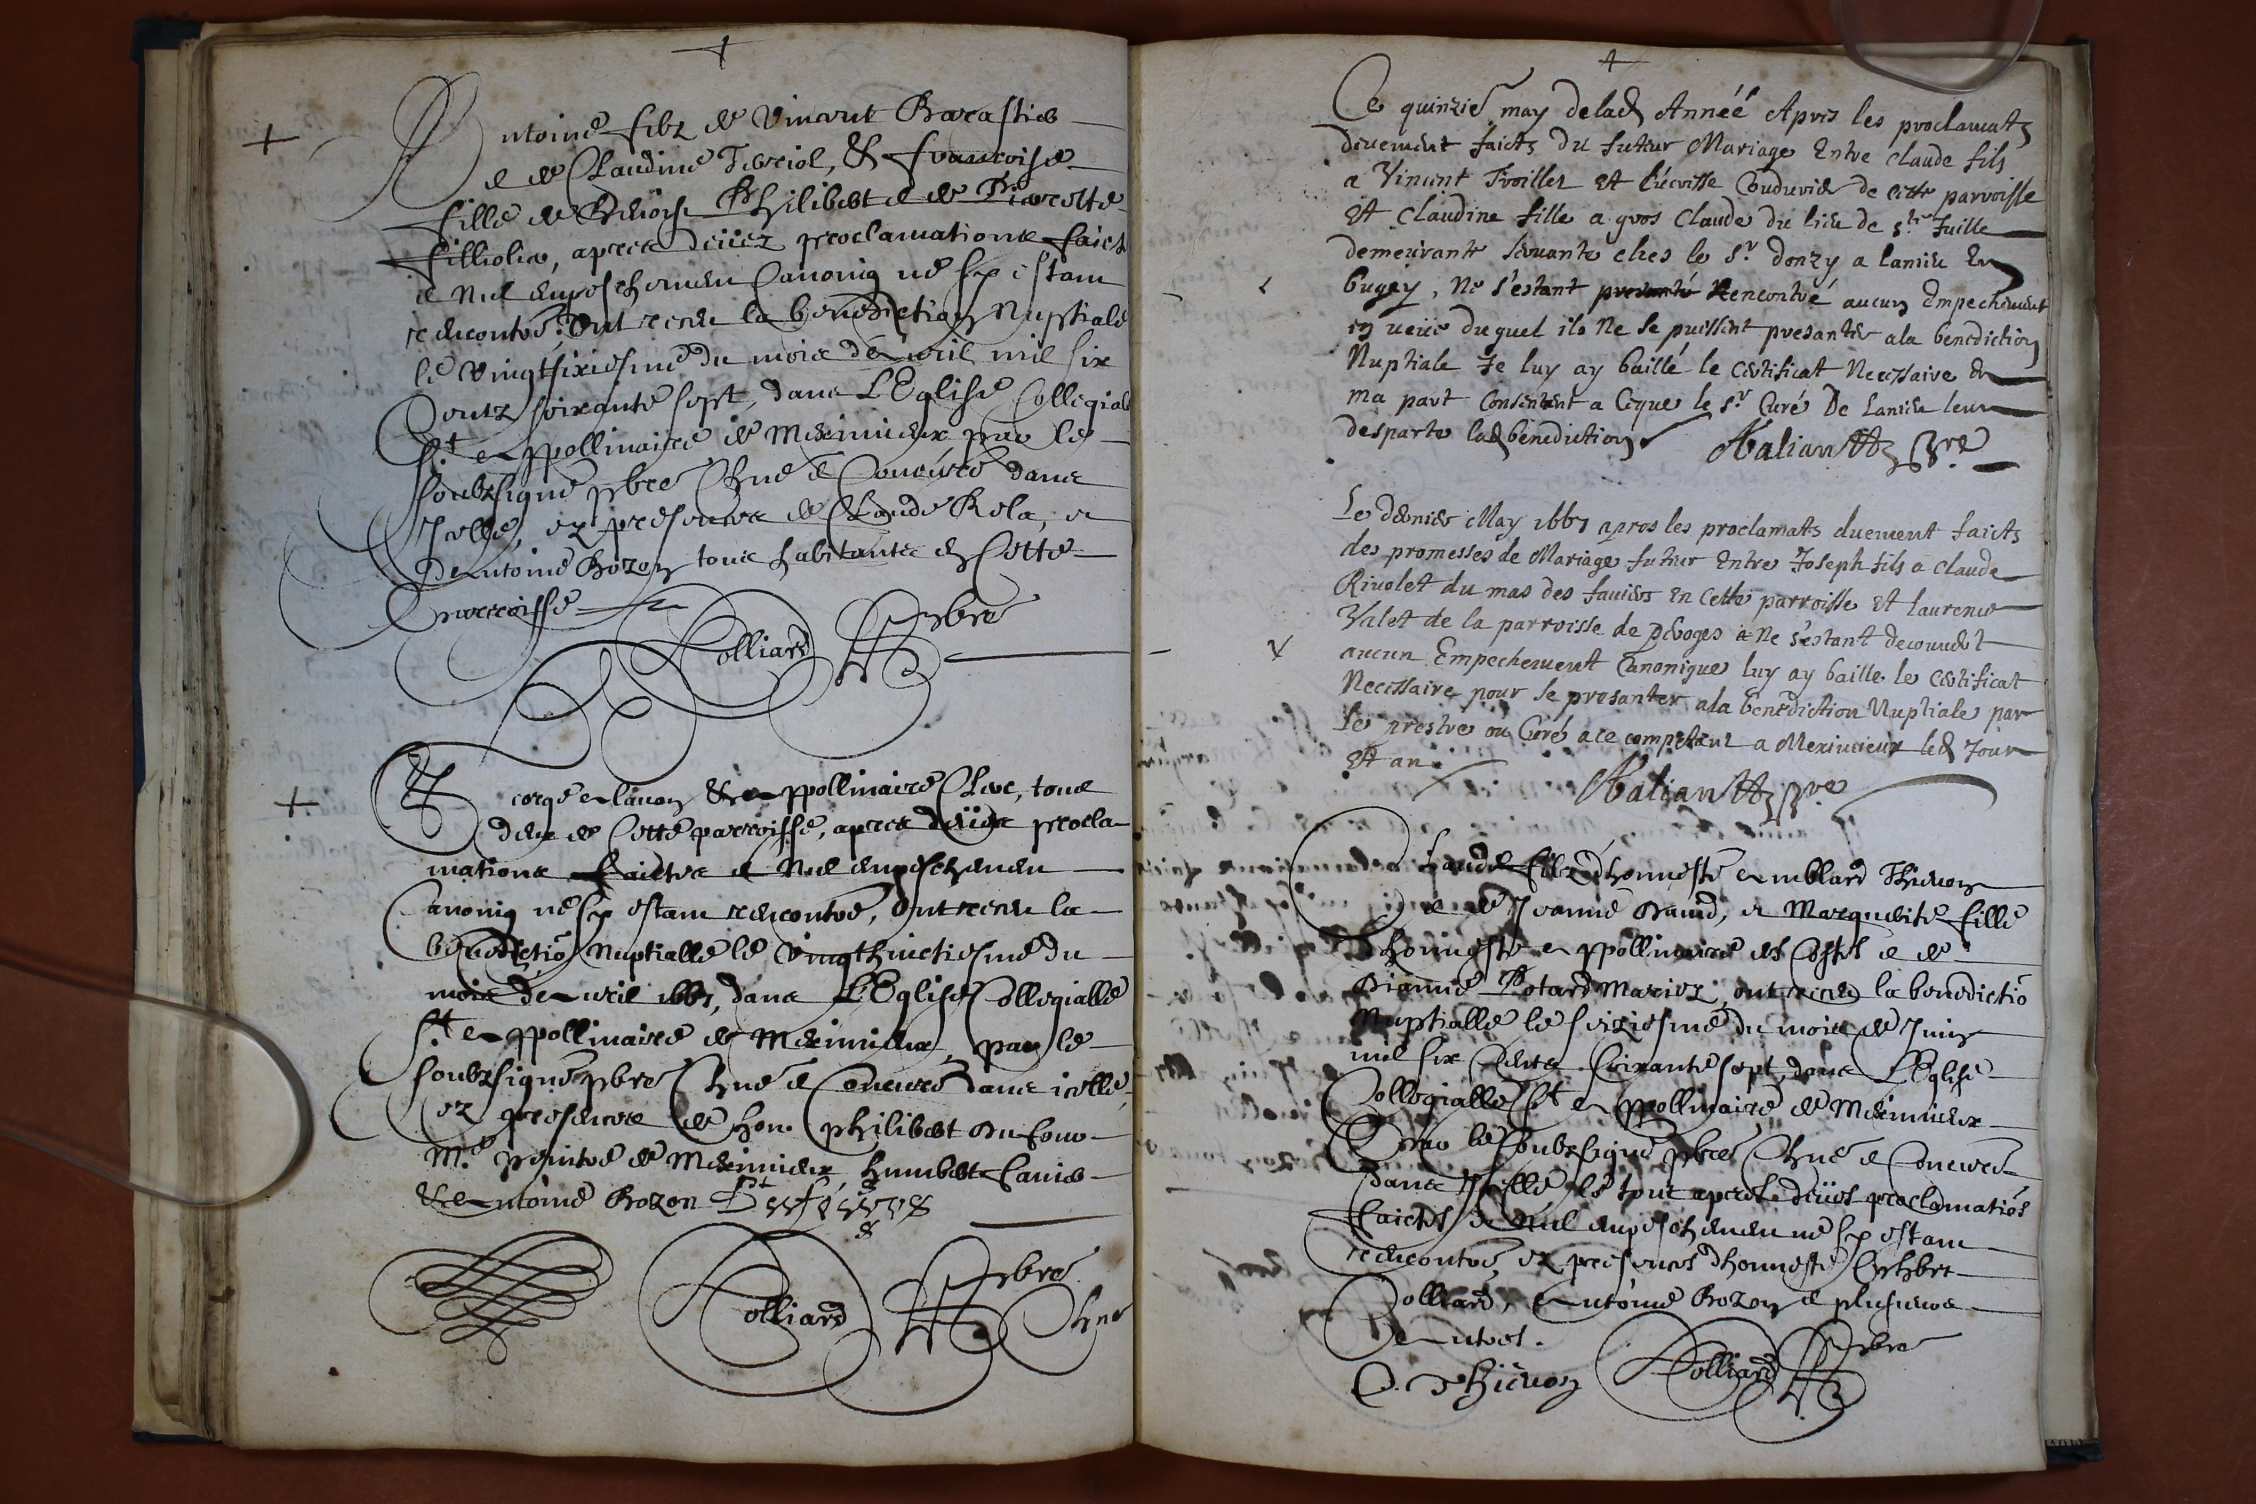 Antoine filz de Vincent Barastier
e de Claudine Terriol, & francoise
fille de Philibert e de Pierrette
filliolier, apres deües proclamations faict
e Nul empeschemen Canoniq ne sy estam
rencontré, Ont receu la benediction Nuptiale
le vingtsixiesme du mois d'Avril mil six
Centz soixante sept, dans L'Eglise Collegiale
St Appollinaire de Meximieux par le
soubzsigné pbre Chne e Concuré dans
Icelle, ez presences de Claude Rola, e
d'Antoine Bozon tous habitants en Cette
parroisse
Rolliard pbre
George Lauon & Appollinaire Clerc, tous
deux de Cette parroisse, apres deües procla-
mations faictes e Nul empeschemen
Canoniq ne sy estam rencontré, Ont receu la
benedictiō Nuptialle le vingthuictiesme du
mois d'Avril 1667, dans L'Eglise Collegialle
St Appollinaire de Meximieux, par le
soubzsigné pbre Chne e Concuré dans icelle,
ez presences de hon. philibert Dufour
Me peintre de Meximieux, humbert Cauier
& Antoine Bozon
Rolliard pbre
Chne
Ce quinzie may de lad Année Apres les proclamats
deuement faicts du futeur Mariage Entre Claude fils
a Vincent Troillet Et Coudurier de cette parroisse
Et Claudine fille a gros Claude du lieu de ste Juille
demeurante seruante ches le sr donzy a Lanieu En
bugey, Ne s'estant Rencontré aucun Empechement
en veüe duquel ils Ne se puissent presanter a la benediction
Nuptiale Je luy ay baillé le Certificat Necessaire de
ma part Consentent a Ceque le sr Curé De Lanieu leur
desparte lad benediction
Baliantt pbre
Le dernier May 1667 apres les proclamats duement faicts
des promesses de Mariage futeur Entre Joseph fils a Claude
Riuolet du mas des fauiers En Cette parroisse Et laurence
Valet de la parroisse de Peroges Ne s'estant decouuert
aucun Empechement Canonique luy ay baillé le Certificat
Necessaire pour se presanter a la benediction Nuptiale par
le prestre ou Curé a ce competent a Meximieux led Jour
Et an
Baliantt pbre
Claude filz d'honneste Emblard Thieuon
e de Jeanne Dauid, e Marguerite fille
d'honneste Appollinaire des Costes e de
Dianne Potard Mariez, ont receu la benedictiō
Nuptialle le seiziesme du mois de Juin
mil six Cents soixante sept, dans L'Eglise
Collegialle St Appollinaire de Meximieux
par le soubzsigné pbre Chne e Concuré
dans Icelle, le tout apres deües proclamatiōs
faictes e Nul empeschemen ne sy estam
rencontré, ez presences d'honneste
Rolliard, Antoine Bozon e plusieurs
Autres.
C. Thieuon Rolliard pbre